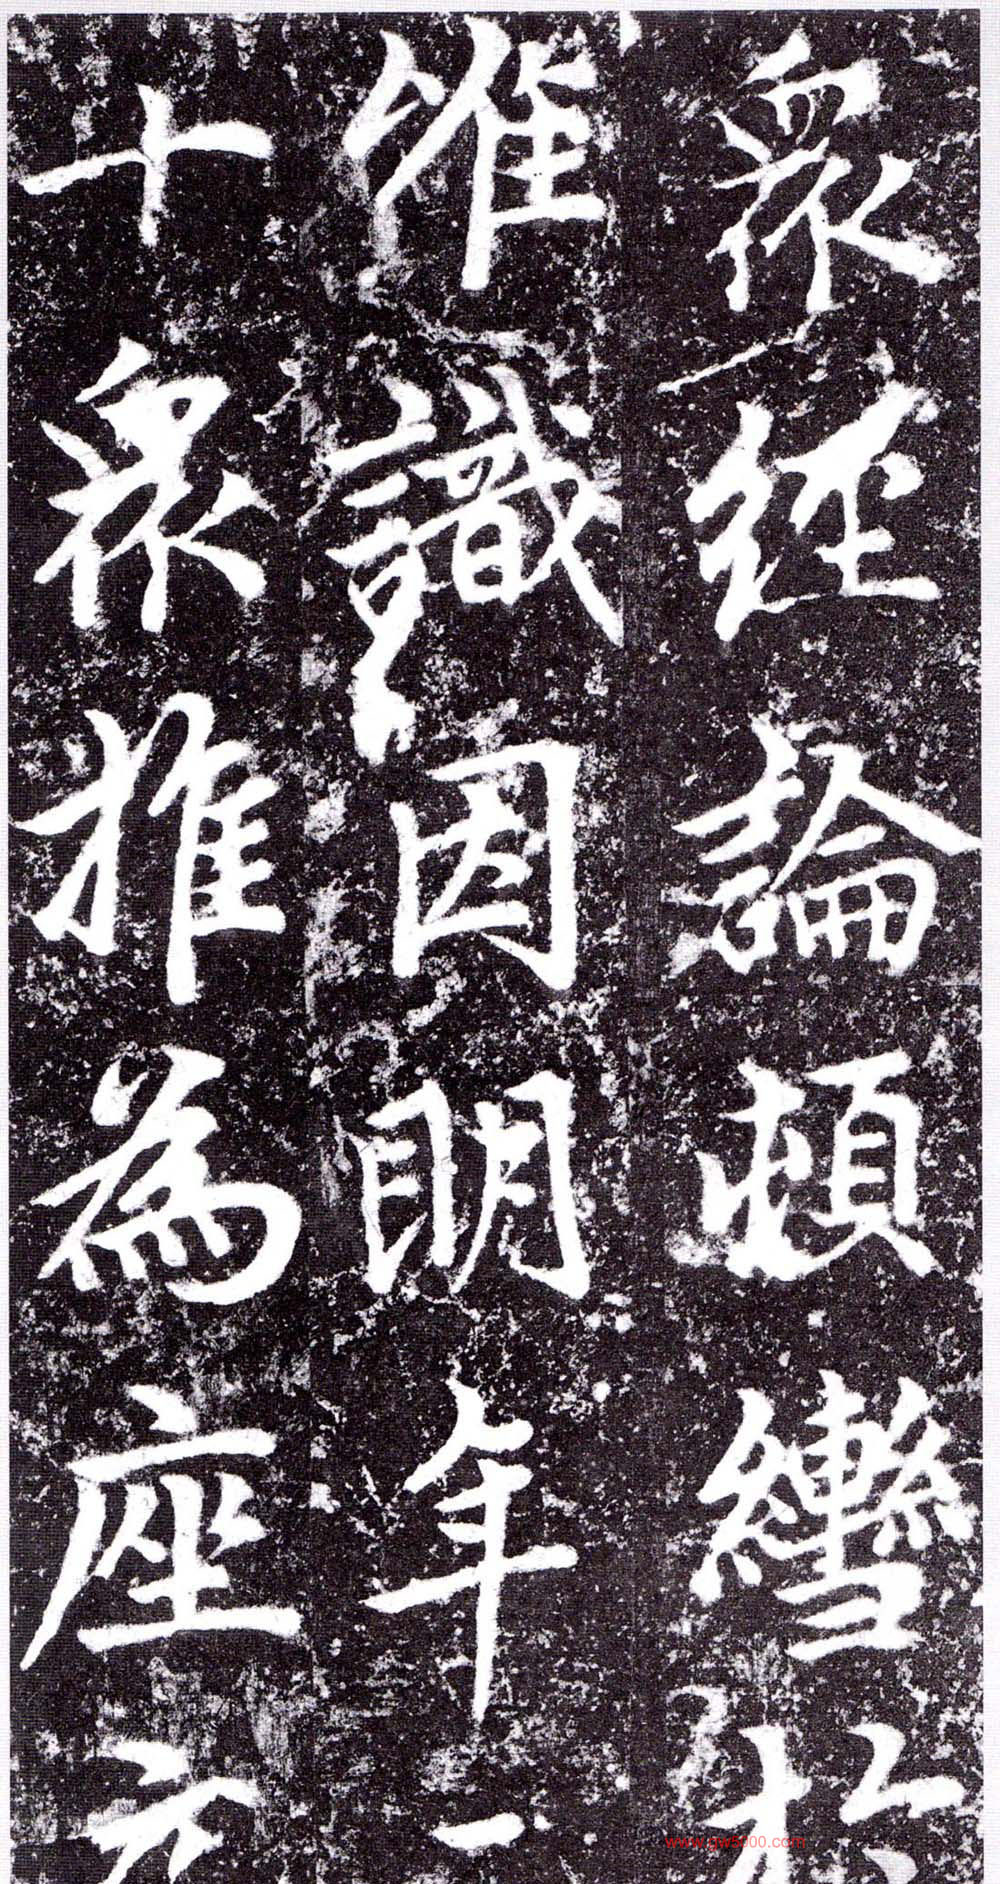 衆經論頓轡於
惟識因明年
十衆推為座
www.gw5000.com